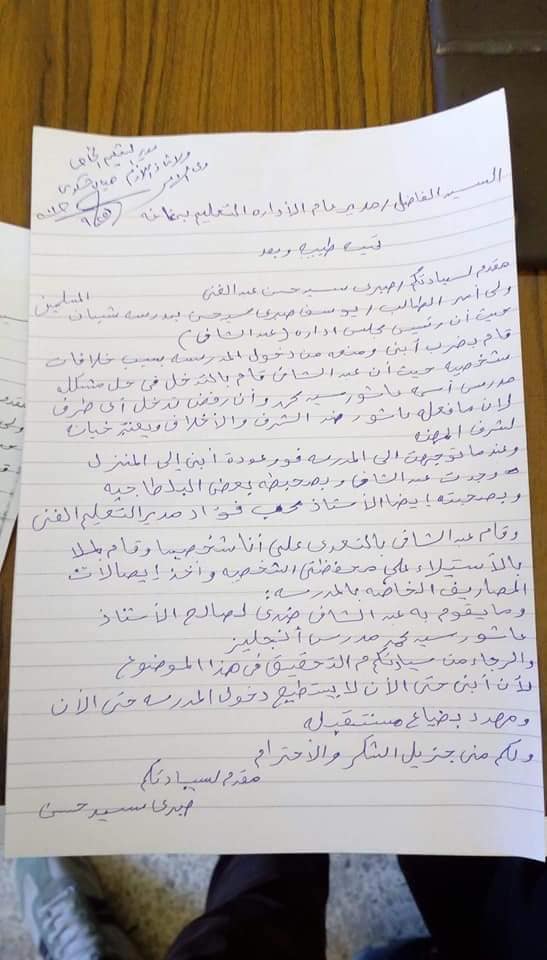 مدير التعليم الخاص
السيد الفاضل / مدير عام الأداره التعليم ببمغاغه
تحيه طيبه وبعد
مقدم لسيادتكم / صبرى سيد حسن عبد الغنى
ولى أمر الطالب / يوسف صبرى سيد حسن بمدرسه شبان المسلمين
حيث أن رئيس مجلس اداره (عبد الشافى)
قام بضرب أبنى ومنعه من دخول المدرسه بسبب خلافات
شخصيه حيث أن عبد الشافى قام بالتدخل فى حل مشكله
مدرس أسمه عاشور سيد محمد وأن رفض تدخل أى طرف
لأن ما فعله عاشور ضد الشرف والأخلاق ويعتبر خيانه
لشرف المهنه
وعندما توجهت الى المدرسه فور عودة أبنى إلى المنزل
وجدت عبد الشافى وبصحبته بعض البلطاجيه
وبصحبته ايضا الأستاذ فؤاد مدير التعليم الفنى
وقام عبد الشافى بالتعدى على أنا شخصيا وقام
بالأستيلاء على محفظتى الشخصيه وأخذ إيصالات
المصاريف الخاصه بالمدرسه:
وما يقوم به عبد الشافى ضدى لصالح الأستاذ
عاشور سيد محمد مدرس أنجليز
والرجاء من سيادتكم التحقيق فى هذا الموضوع
لأن أبنى حتى الأن لا يستطيع دخول المدرسه حتى الأن
ومهدد بضياع مستقبله
ولكم منى جزيل الشكر والأحترام
مقدم لسيادتكم
صبرى سيد حسن